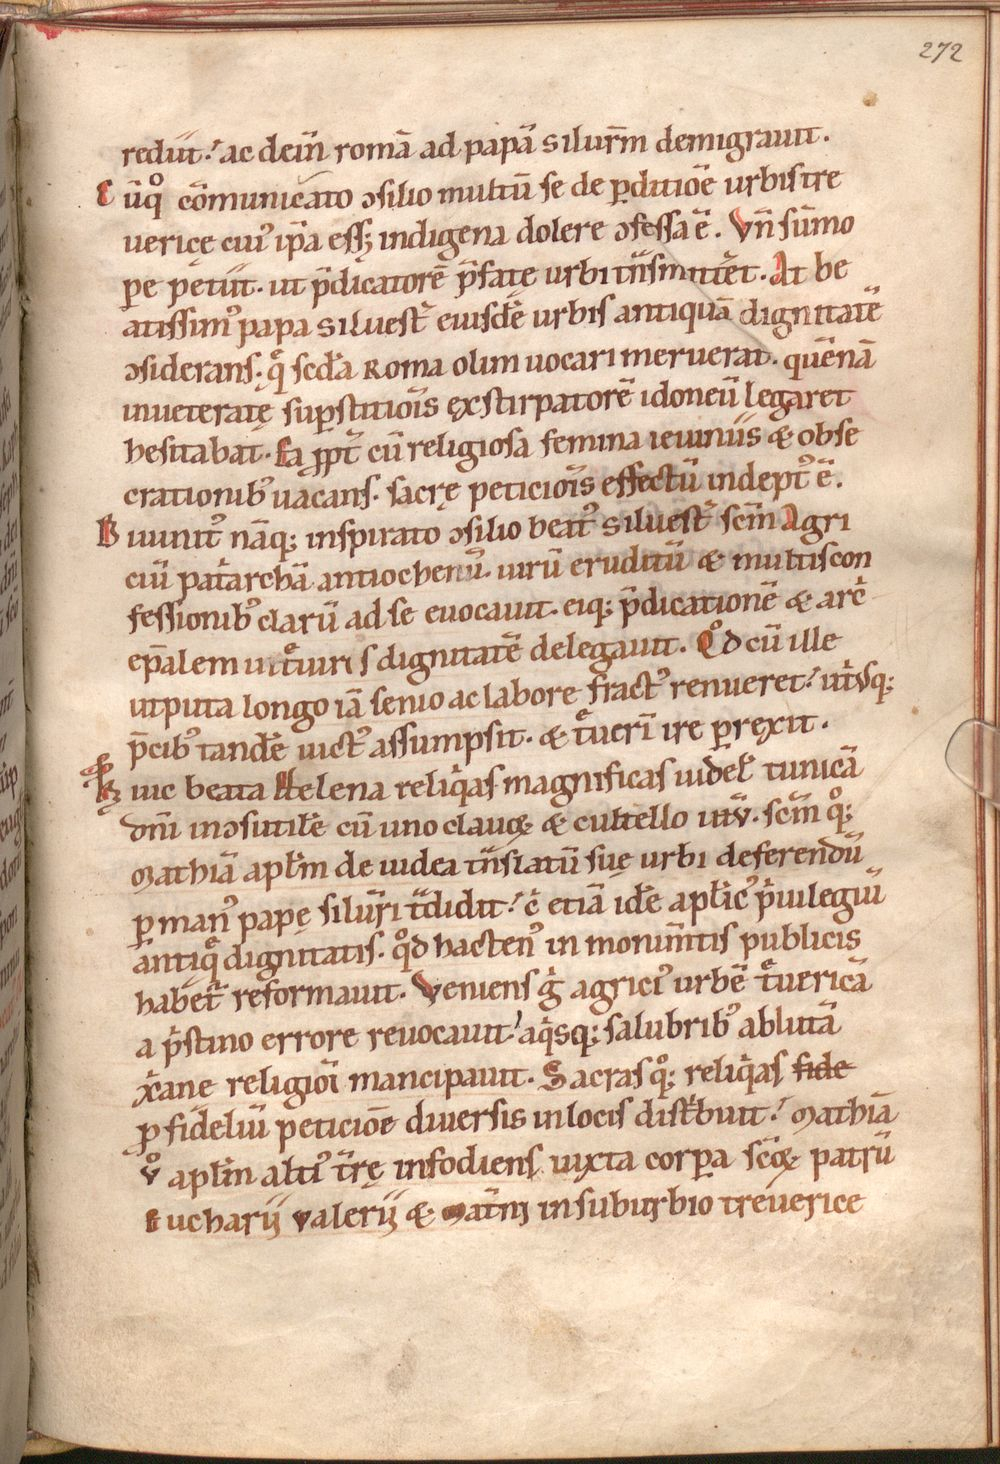 272
rediit. ac dein̄ romā ad papā silur̄m demigrauit.
Eūqͦ cōmunicato ꝯsilio multū se de ꝑditiōe urbis tre
uericę cuiꝰ ip̄a eēt indigena dolere ꝯfessa ē. Vn̄ sūmo
ꝑe petiit. ut p̄dicatorē p̄fatę urbi tn̄smitt̄et. At be
atissimꝰ papa siluest̄ eiusdē urbis antiquā dignitatē
ꝯsiderans. q̄ scd̄a Roma olim uocari meruerat. quēnā
inueteratę suꝑstitiōis ęxstirpatorē idoneū legaret
hesitabat. Ea ꝓpt̄ cū religiosa femina ieiuniis & obse
crationibꝰ uacans. sacrę peticiōis effectū indeptꝰ ē.
Diuinitꝰ nāq; inspirato ꝯsilio beatꝰ siluest̄ scm̄ Agri
ciū pat̄archā antiochenū. uirū eruditū & multis con
fessionibꝰ clarū ad se euocauit. eiq; p̄dicationē & arc̄
ep̄alem in tͤuiris dignitatē delegauit. Qͦd cū ille
utputa longo iā senio ac labore fractꝰ renueret. utⁱsq;
p̄cibꝰ tandē uictꝰ assumpsit. & tͤuerī ire ꝑrexit.
Huic beata Helena reliqⁱas magnificas uidel̄ tunicā
dn̄i inꝯsutilē cū uno clauoꝝ & cultello  scm̄ qͦ;
Mathiā apl̄m de iudea tn̄slatū suę urbi deferendū
ꝑ manꝰ papę silur̄i t̄didit. c̄ etiā idē apl̄icꝰ pⁱuilegiū
antiqͤ dignitatis. qͦd hactenꝰ in monim̄tis publicis
habet̄ reformauit. Veniens gͥ agriciꝰ urbē tͤuericā
a pⁱstino errore reuocauit. aqⁱsq; salubribꝰ ablutā
xⁱane religiōi mancipauit. Sacras qͦ; reliqⁱas fide
ꝓ fideliū peticiōe diuersis in locis distⁱbuit. Mathiā
vͦ apl̄m altiꝰ t̄rę infodiens iuxta corꝑa scōꝝ patrū
Eucharii valerii & Mat̄ni in suburbio treuerice